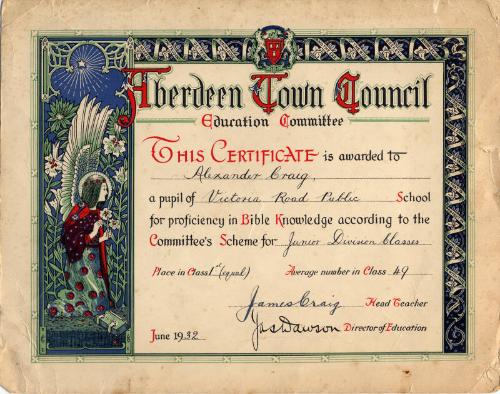 Aberdeen Town Council
Education Committee
This Certificate is awarded to
Alexander Craig,
a pupil of Victoria Road Public School
for proficiency in Bible Knowledge according to the
Committee's Scheme for Junior Division Classes
Place in Class 1st (equal) Average number in Class 49
James Craig Head Teacher
Jas Dawson Director of Education
June 1932